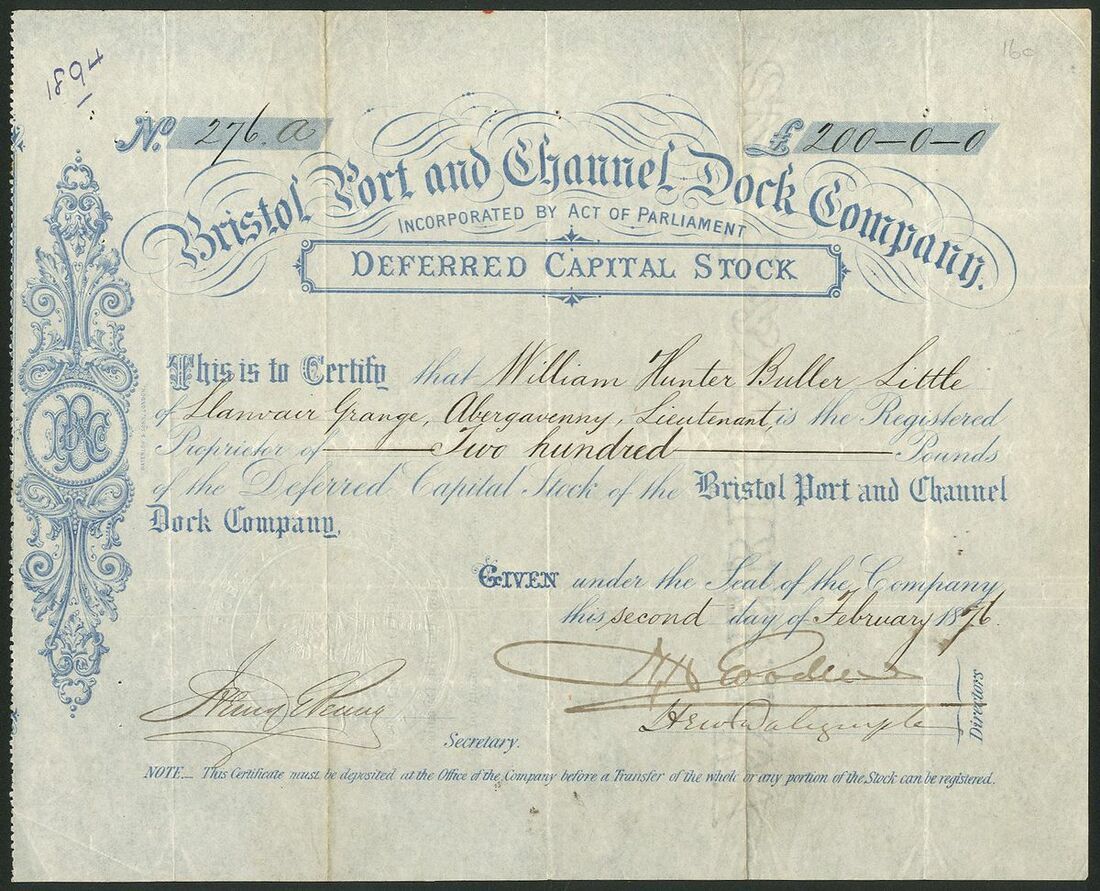 1894
160
No. 276.a £ 200-0-0
Bristol Port and Channel Dock Company.
INCORPORATED BY ACT OF PARLIAMENT
DEFERRED CAPITAL STOCK
This is to Certify that William Hunter Buller Little
of Llanvair Grange, Abergavenny, Lieutenant, is the Registered
Proprietor of Two hundred Pounds
of the Deferred Capital Stock of the Bristol Port and Channel
Dock Company.
GIVEN under the Seal of the Company
this second day of February 1876.
Directors
Secretary.
NOTE._ This Certificate must be deposited at the Office of the Company before a Transfer of the whole or any portion of the Stock can be registered.